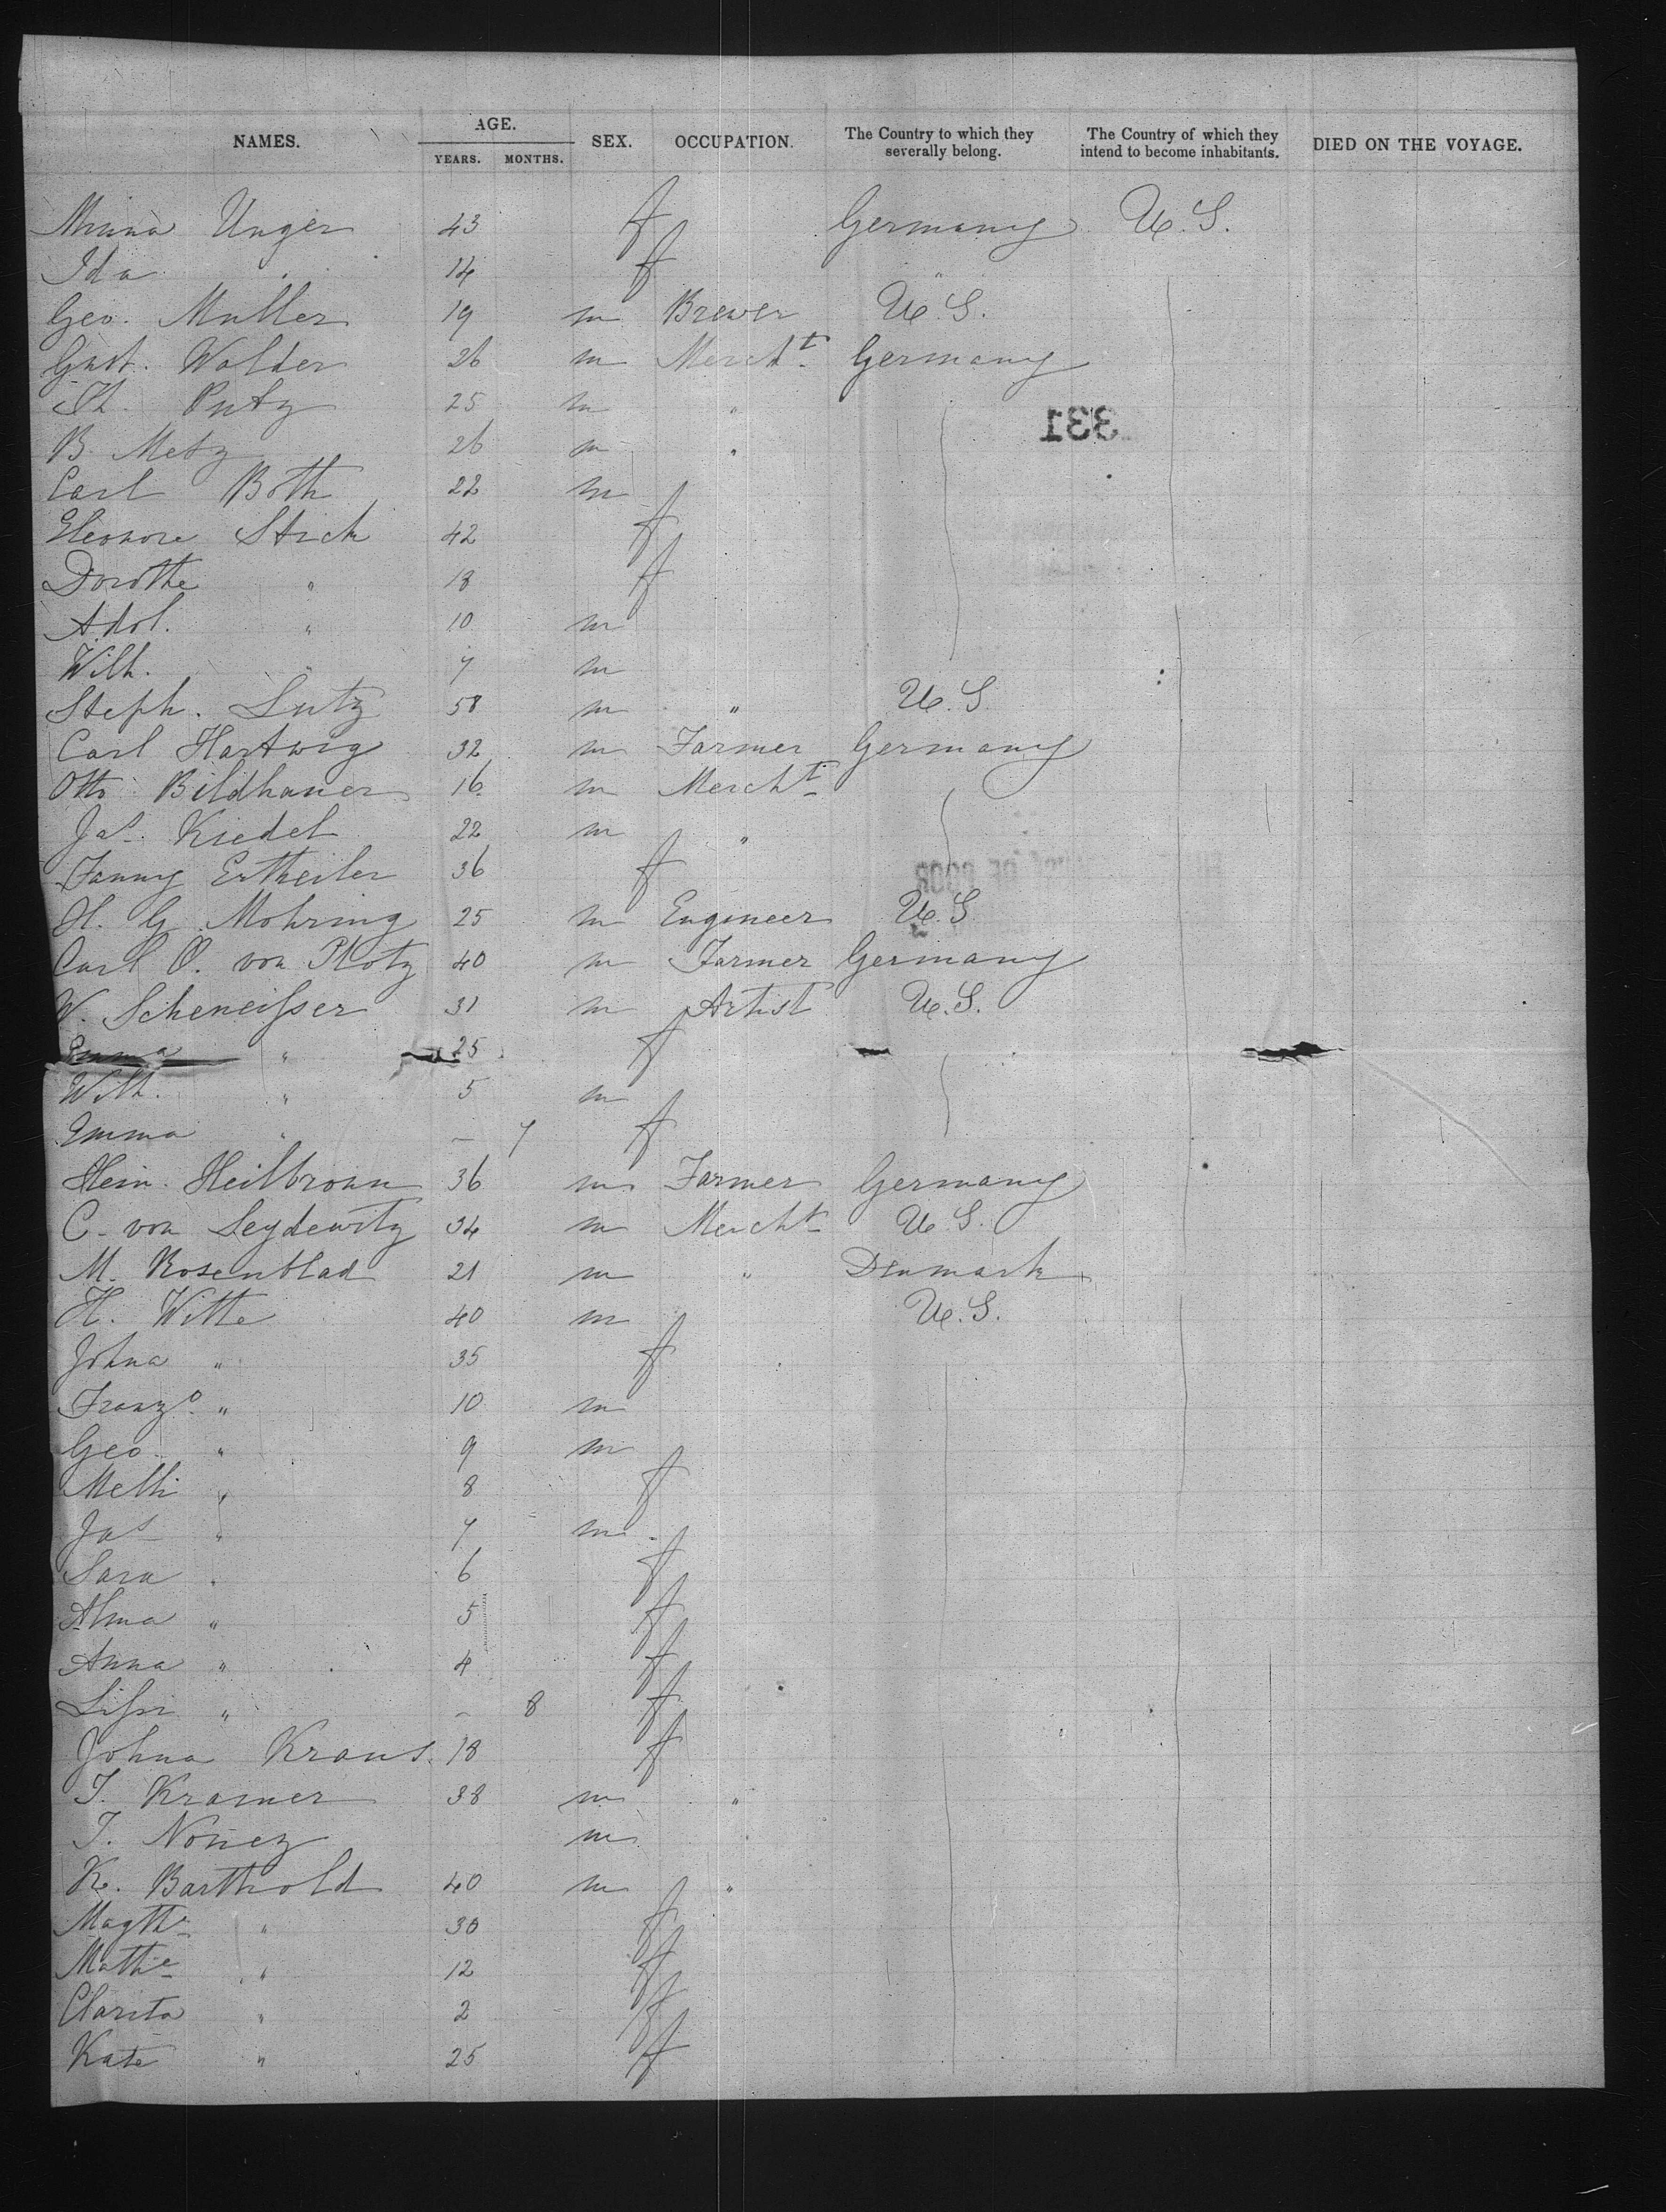 NAMES. AGE. YEARS. MONTHS. SEX. OCCUPATION. The Country to which they severally belong. The Country of which they intend to become inhabitants. DIED ON THE VOYAGE.
Minna Unger 43 f Germany U.S.
Ida " 14 f "
Geo. Muller 19 m Brewer U.S.
Gust. Walder 26 m Mercht Germany
Th. Putz 25 m "
B. Metz 26 m "
1331
Carl Both 22 m
Eleonore Stich 42 f
Dorothe " 18 f
Adol. " 10 m
Wilh. " 7 m
Steph. Lutz 58 m " U.S.
Carl Hartwig 32 m Farmer Germany
Otto Bildhauer 16 m Mercht
Jas. Kiedel 22 m "
Fanny Ertheiler 36 f
H. G. Mohring 25 m Engineer U.S.
Carl O. von Plotz 40 m Farmer Germany
W. Scheneisser 31 m Artist U.S.
Emma " 25 f
Wilh. " 5 m
Emma " – 7 f
Hein. Heilbronn 36 m Farmer Germany
C. von Seydewitz 34 m Mercht U.S.
M. Rosenblad 21 m " Denmark
H. Witte 40 m U.S.
Johna " 35 f
Franzo " 10 m
Geo. " 9 m
Melli " 8 f
Jas " 7 m
Sara " 6 f
Alma " 5 f
Anna " 4 f
Lissi " – 8 f
Johna Kraus 18 f
T. Kramer 38 m "
T. Nonez m
K. Barthold 40 m "
Magthe " 30 f
Mathe " 12 f
Clarita " 2 f
Kate " 25 f